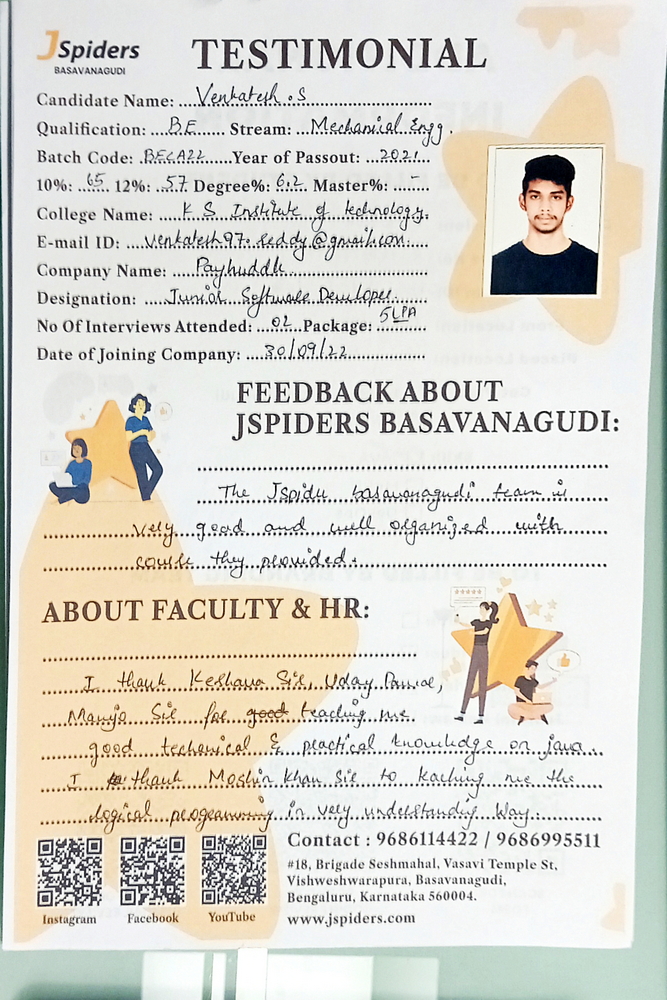 JSpiders
BASAVANAGUDI
TESTIMONIAL
Candidate Name: Venkatesh .S
Qualification: BE Stream: Mechanical Engg.
Batch Code: BECA22 Year of Passout: 2021
10%: 65 12%: 57 Degree%: 6.2 Master%: -
College Name: K S Institute of technology.
E-mail ID: venkatesh97.reddy@gmail.com
Company Name: Payhuddle
Designation: Junior Software Developer
No Of Interviews Attended: 02 Package: 5LPA
Date of Joining Company: 30/09/22
FEEDBACK ABOUT
JSPIDERS BASAVANAGUDI:
The Jspider basavanagudi team is
very good and well organized with
course they provided.
ABOUT FACULTY & HR:
I thank Keshava Sir, Uday
Manjo Sir for good teaching me
good techanical & practical knowledge on java.
I thank Moshin Khan Sir to teaching me the
logical programming in very understanding Way.
Contact : 9686114422 / 9686995511
#18, Brigade Seshmahal, Vasavi Temple St,
Vishweshwarapura, Basavanagudi,
Bengaluru, Karnataka 560004.
www.jspiders.com
Instagram Facebook YouTube